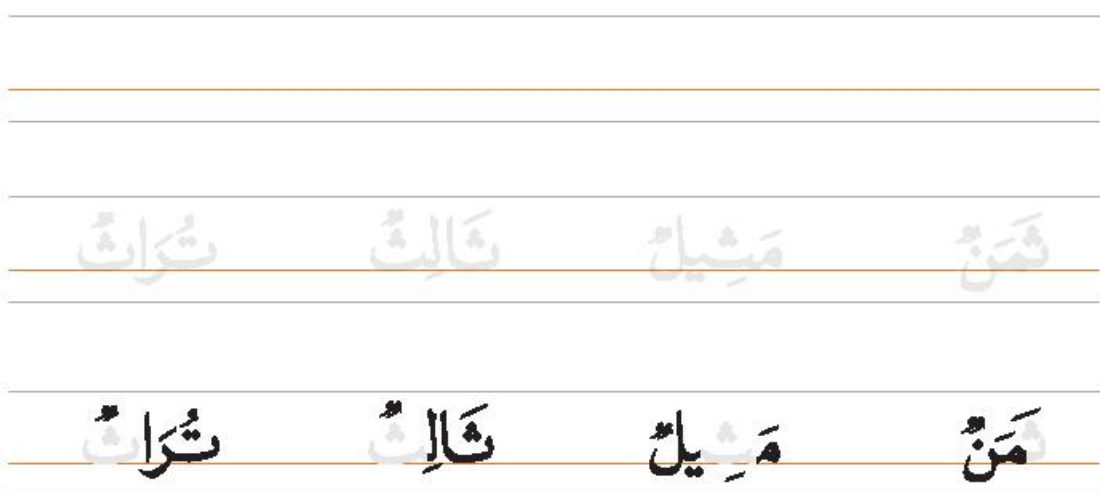 ثَمَنٌ مَثِيلٌ ثَالِثٌ تُرَاثٌ
ثَمَنٌ مَثِيلٌ ثَالِثٌ تُرَاثٌ